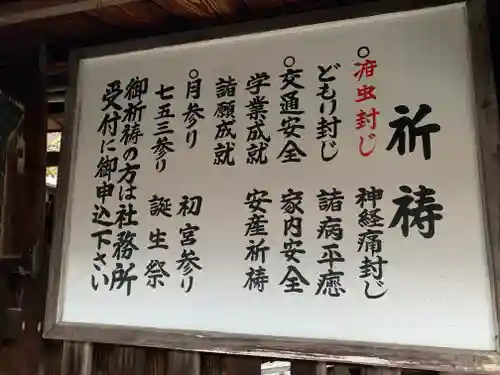 祈祷
○疳虫封じ 神経痛封じ
どもり封じ 諸病平癒
○交通安全 家内安全
学業成就 安産祈祷
諸願成就
○月参り 初宮参り
七五三参り 誕生祭
御祈祷の方は社務所
受付に御申込下さい